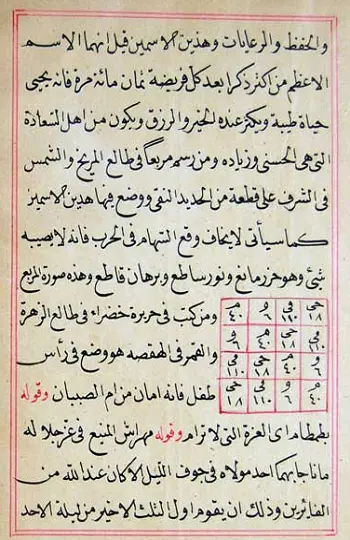 والحفظ والرعايات وهذين الاسمين قيل انهما الاسم
الاعظم من اكثر ذكرا بعد كل فريضة ثمان مائة مرة فانه يحيى
حياة طيبة ويكثر عنده الخير والرزق ويكون من اهل السعادة
التى هى الحسنى وزياده ومن رسم مربعا فى طالع المريخ والشمس
فى الشرف على قطعة من الحديد النقى ووضع فيها هذين الاسمين
كما سيأتى لا يخاف وقع السهام فى الحرب فانه لا يصيبه
شئ وهو حرز مانع ونور ساطع وبرهان قاطع وهذه صورة المربع
حى ١٨ فى ١١٠ و ٦ م ٤٠ ومن كتب فى حريرة خضراء فى طالع الزهرة
فى ١١٠ حى ١٨ م ٤٠ و ٦
والقمر فى الهقعه هو ووضع فى رأس
و ٦ م ٤٠ حى ١٨ فى ١١٠
م ٤٠ و ٦ فى ١١٠ حى ١٨ طفل فانه امان من ام الصبيان وقوله
بطمطام اى العزة التى لا ترام وقوله مهراش المنيع فى عز جلاله
ما ناجا بهما احد مولاه فى جوف الليل الا كان عند الله من
الفائزين وذلك ان يقوم اول الثلث الاخير من ليلة الاحد